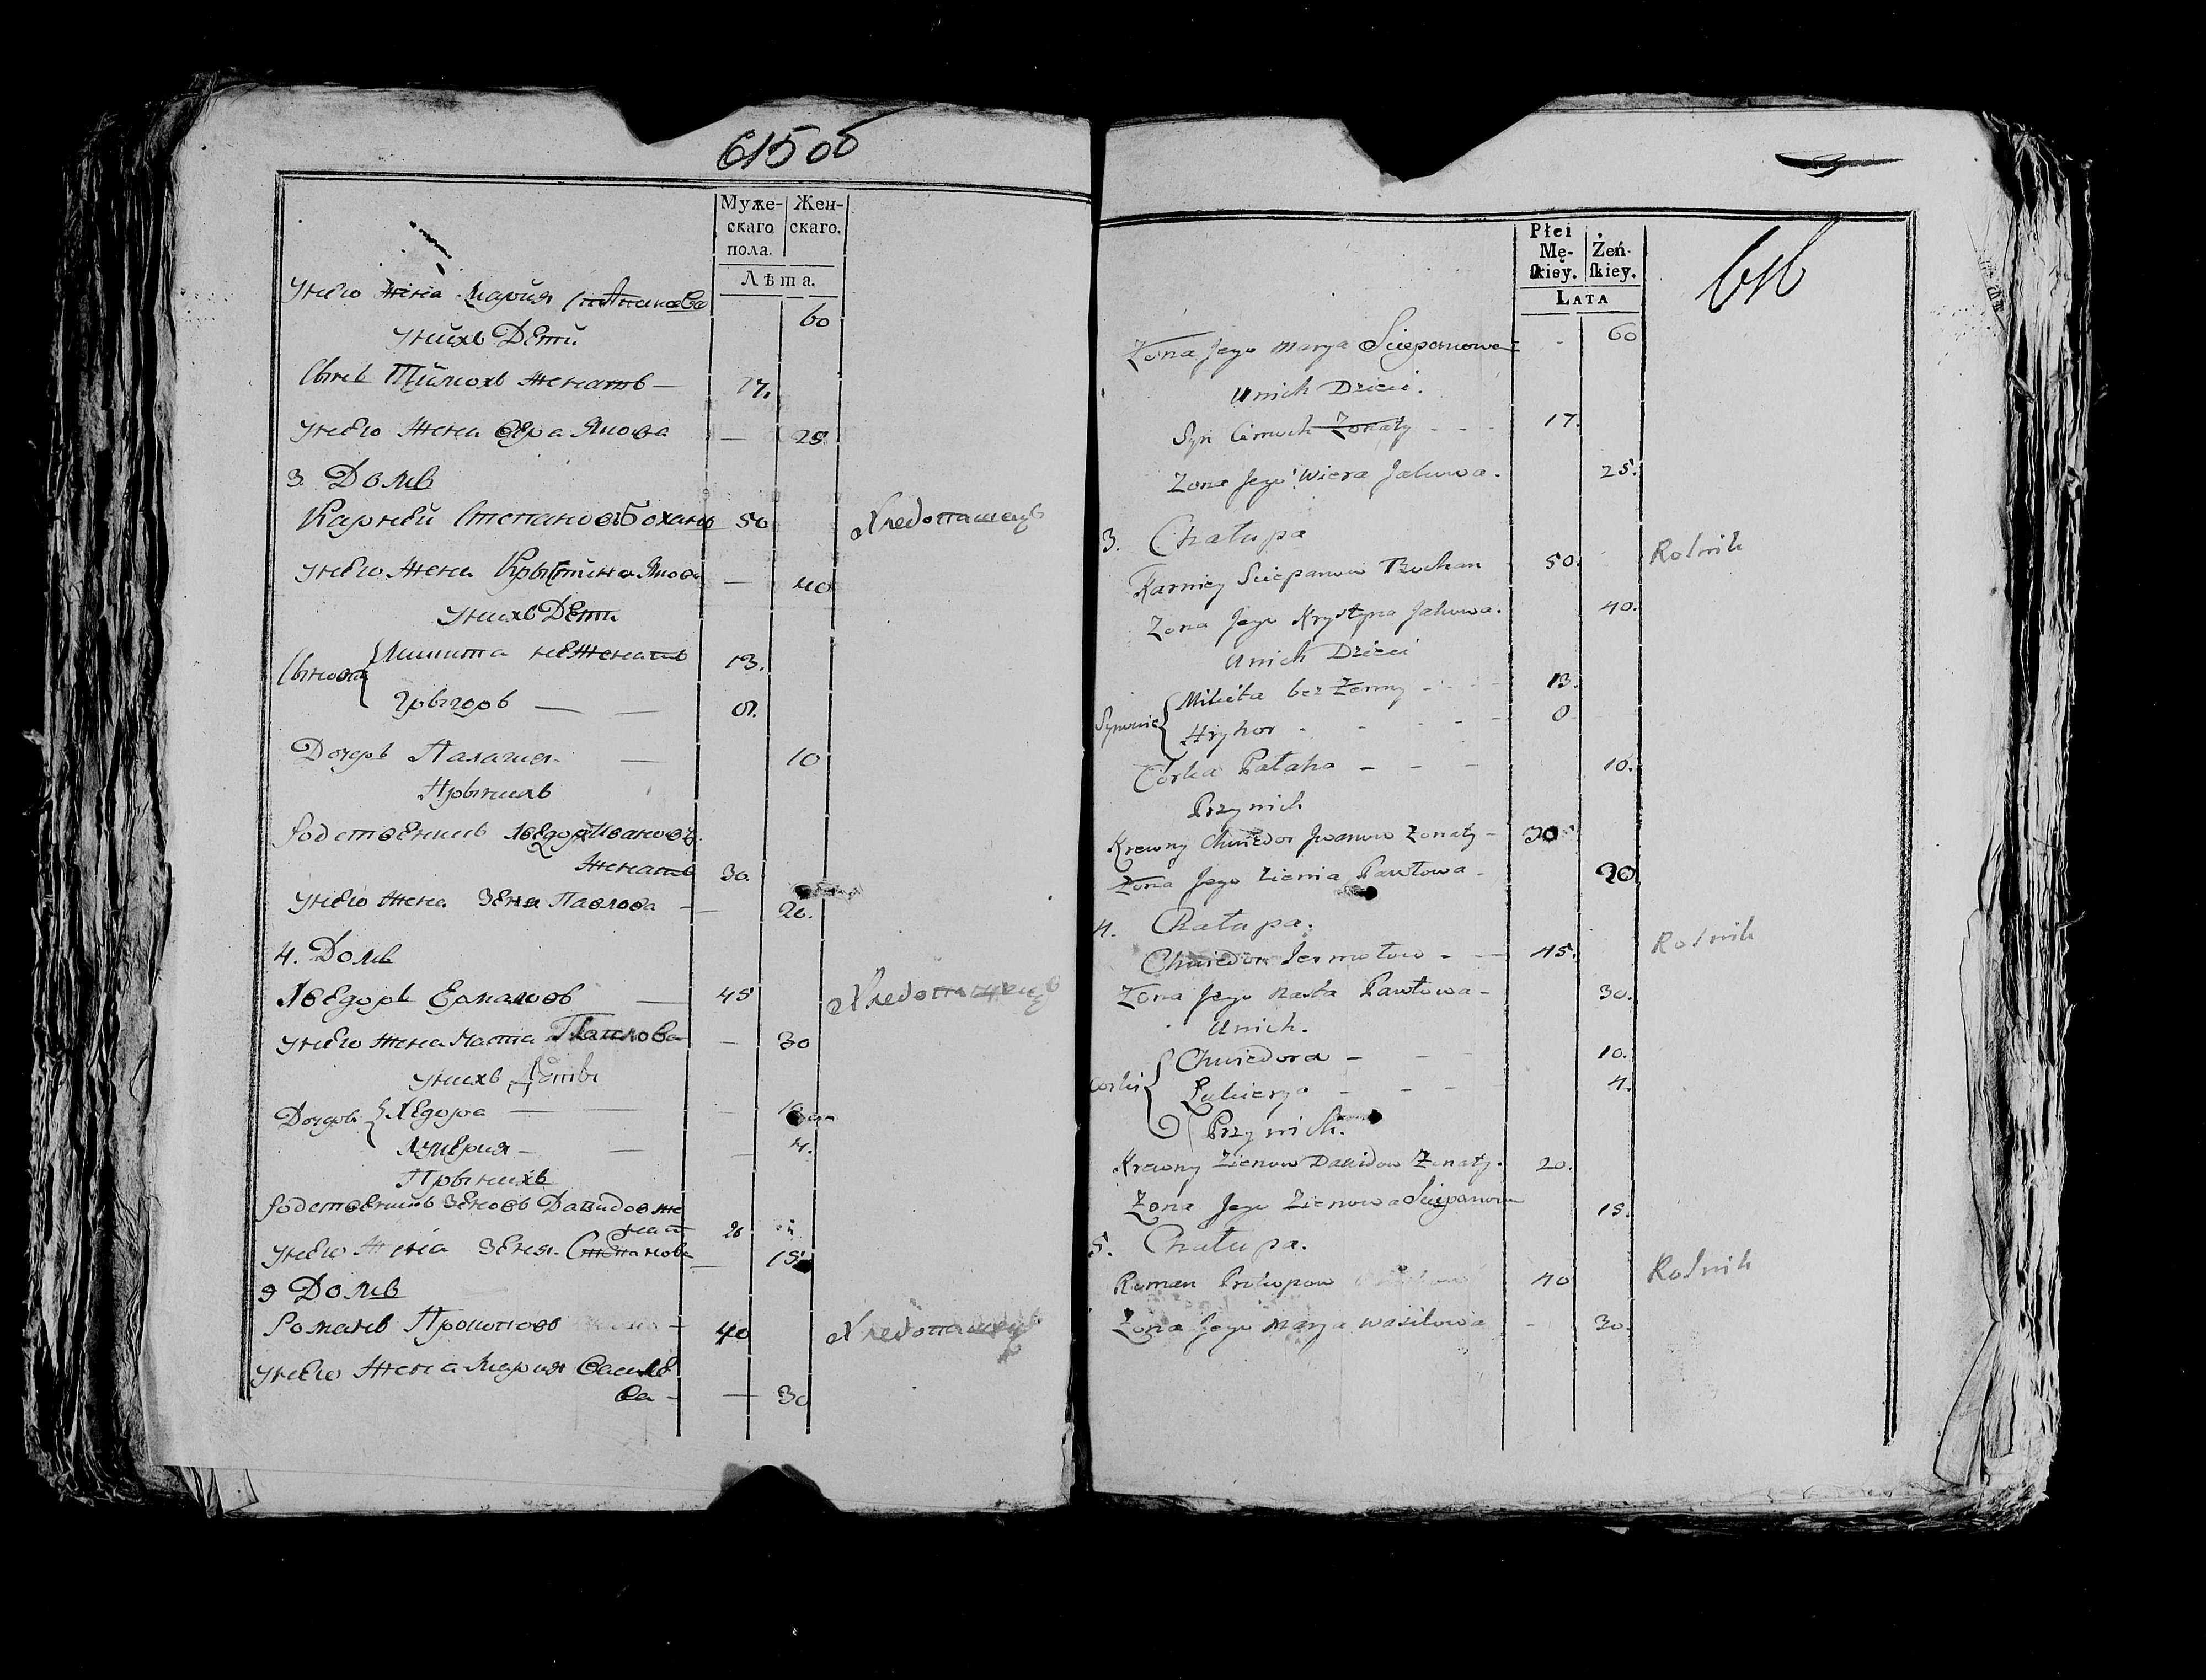 615 об
Муже-
скаго
пола.
Жен-
скаго.
Лѣта.
У него жена Мария Степанова
60
У нихъ Дети
Сынъ Тимохъ женатъ —
17.
У него жена Вера Якова
— 25
3. Домъ
Карней Степановъ Боханъ 50 Хлебопашецъ
У него жена Крыстина Якова — 40
У нихъ Дети
Сыновя
Микита неженатъ 13.
Грыгоръ — — 8.
Дочеръ Палагия — 10
Пры нихъ
Родственикъ Хведоръ Ивановъ
женатъ 30.
У него жена Зеня Павлова — 20.
4. Домъ
Хведоръ Ермаловъ — 45 Хлебопашецъ
У него жена Наста Павлова — 30
У нихъ Дети
Дочеръ
Хведора — — — 10
Лукерия — — — 4.
Пры нихъ
Родственикъ Зеновъ Давидовъ же
натъ 20
У него жена Зеня Степанова — 15
5 Домъ
Романъ Прокоповъ — 40 Хлебопашецъ
У него жена Мария Василе
ва — — 30
616
Płei
Mę-
skiey.
Żeń-
skiey.
LATA
Zona Jego Marya Sciepanowa - 60
U nich Dzieci.
Syn Cimoch Zonaty - - - 17.
Zona Jego Wiera Jakowa. 25.
3. Chałupa
Karniey Sciepanow Bochan 50. Rolnik
Zona Jego Krystyna Jakowa. 40.
U nich Dzieci
Synowie
Mikita bez Zenny - - - 13.
Hryhor - - - - 8
Córka Pałaha - - - 10.
Przy nich
Krewny Chwiedor Jwanow Zonaty - 30
Zona Jego Zienia Pawłowa - 20
4. Chałupa.
Chwiedor Jermołow - - 45. Rolnik
Zona Jego Nasta Pawłowa - 30.
U nich.
Corki
Chwiedora - - - 10.
Łukierya - - - 4.
Przy nich.
Krewny Zienow Dawidow Zonaty. 20.
Zona Jego Zienowa Sciepanowa 15.
5. Chałupa.
Roman Prokopow 40 Rolnik
Zona Jego Marya Wasilowa - 30.